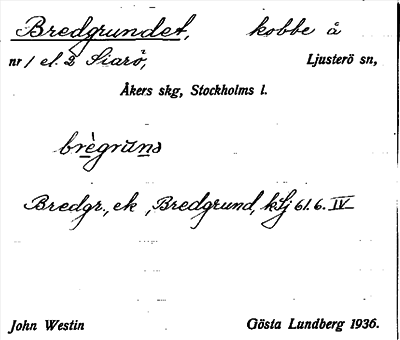 Bredgrundet, kobbe å
nr 1 el. 2 Siarö, Ljusterö sn,
Åkers skg, Stockholms l.
brègrùns
Bredgr., ek, Bredgrund, kSj 61.6. IV
John Westin Gösta Lundberg 1936.